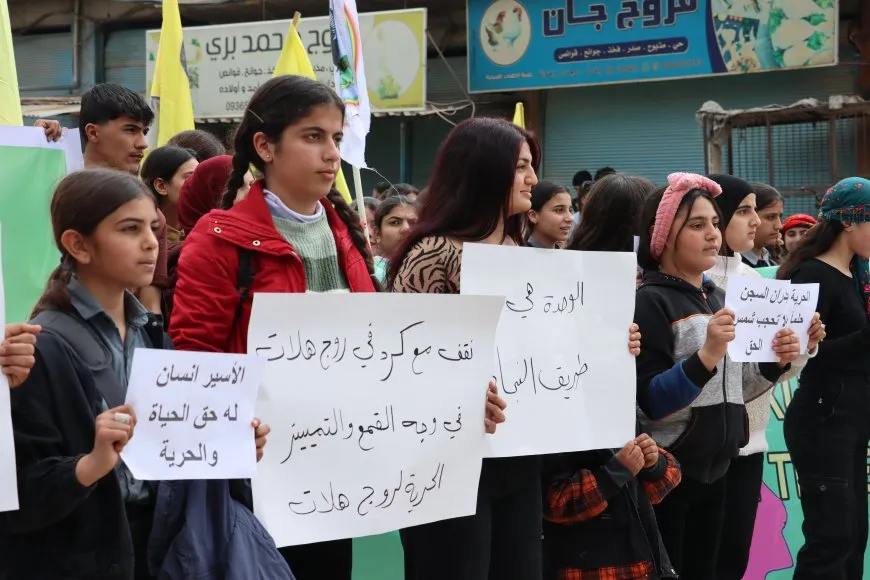 حمد بري
فخذ . جوانح . قوانص
و أولاده
0936
فروج جان
حي . مذبوح . صدر . فخذ . جوانح . قوانص
الأسير انسان
له حق الحياة
والحرية
نقف مع كرد في روج هلات
في وجه القمع والتمييز
الحرية لروج هلات
الوحدة هي
طريق
الحرية السجن
لا تحجب شمس
الحق